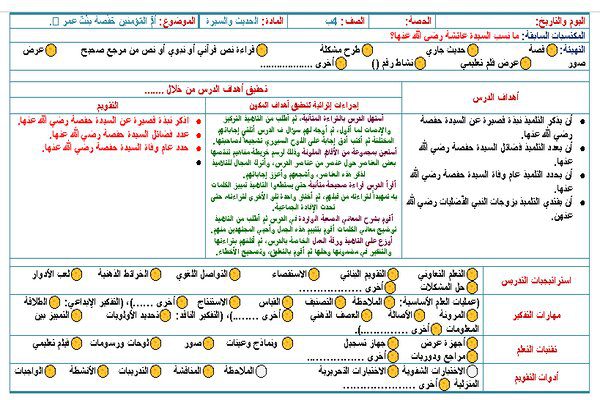 اليوم والتاريخ: الحصة: الصف: 4ب المادة: الحديث والسيرة الموضوع: أم المؤمنين حفصة بنت عمر
المكتسبات السابقة: ما نسب السيدة عائشة رضي الله عنها؟
التهيئة: قصة حديث جاري طرح مشكلة قراءة نص قرآني أو نبوي أو نص من مرجع صحيح عرض
صور عرض فلم تعليمي نشاط رقم ( ) أخرى ....................
أهداف الدرس
أن يذكر التلميذ نبذة قصيرة عن السيدة حفصة
رضي الله عنها.
أن يعدد التلميذ فضائل السيدة حفصة رضي الله
عنها.
أن يحدد التلميذ عام وفاة السيدة حفصة رضي الله
عنها.
أن يقتدي التلميذ بزوجات النبي الفضليات رضي الله
عنهن.
تحقيق أهداف الدرس من خلال .......
إجراءات إثرائية لتحقيق أهداف المكون
أستهل الدرس بالقراءة المتأنية، ثم أطلب من التلاميذ التركيز
والإنصات لما أقول، ثم أوجه لهم سؤال ف الدرس أتلقى إجاباتهم
المختلفة ثم أكتب أدق إجابة على اللوح السبوري تشجيعا لصاحبتها.
أستعين بمجموعة من الأقلام الملونة وذلك لرسم خريطة مفاهيم تنقصها
بعض العناصر حول عنصر من عناصر الدرس، وأترك المجال للتلاميذ
لذكر هذه العناصر، وأشجعهم وأعزز إجاباتهم.
أقرأ الدرس قراءة صحيحة متأنية حتى يستطيعوا التلاميذ تمييز الكلمات
به تمهيدا لقراءته من قبلهم، ثم أختار واحدة تلي الأخرى لقراءته، حتى
تحدث الإفادة الجماعية.
أقوم بشرح المعاني الصعبة الواردة في الدرس ثم أطلب من التلاميذ
توضيح معاني الكلمات أقوم بتقييم هذه الجمل وأحيي المجتهدين منهم.
أوزع على التلاميذ ورقة العمل الخاصة بالدرس، ثم أكلفهم بقراءتها
والتفكير في مضمونها وحلها ثم أقوم بالتعليق، وتصحيح الأخطاء.
التقويم
اذكر نبذة قصيرة عن السيدة حفصة رضي الله عنها.
عدد فضائل السيدة حفصة رضي الله عنها.
حدد عام وفاة السيدة حفصة رضي الله عنها.
استراتيجيات التدريس
التعلم التعاوني التقويم البنائي الاستقصاء التواصل اللغوي الخرائط الذهنية لعب الأدوار
حل المشكلات أخرى ....................
مهارات التفكير
(عمليات العلم الأساسية: الملاحظة التصنيف القياس الاستنتاج أخرى ......)، (التفكير الإبداعي: الطلاقة
المرونة الأصالة العصف الذهني أخرى ........)، (التفكير الناقد: تحديد الأولويات التمييز بين
المعلومات أخرى ................).
تقنيات التعلم
أجهزة عرض جهاز تسجيل ونماذج وعينات صور لوحات ورسومات فيلم تعليمي
مراجع ودوريات أخرى ..................
أدوات التقويم
الاختبارات الشفوية الاختبارات التحريرية الملاحظة المناقشة التدريبات الأنشطة الواجبات
المنزلية أخرى ..................